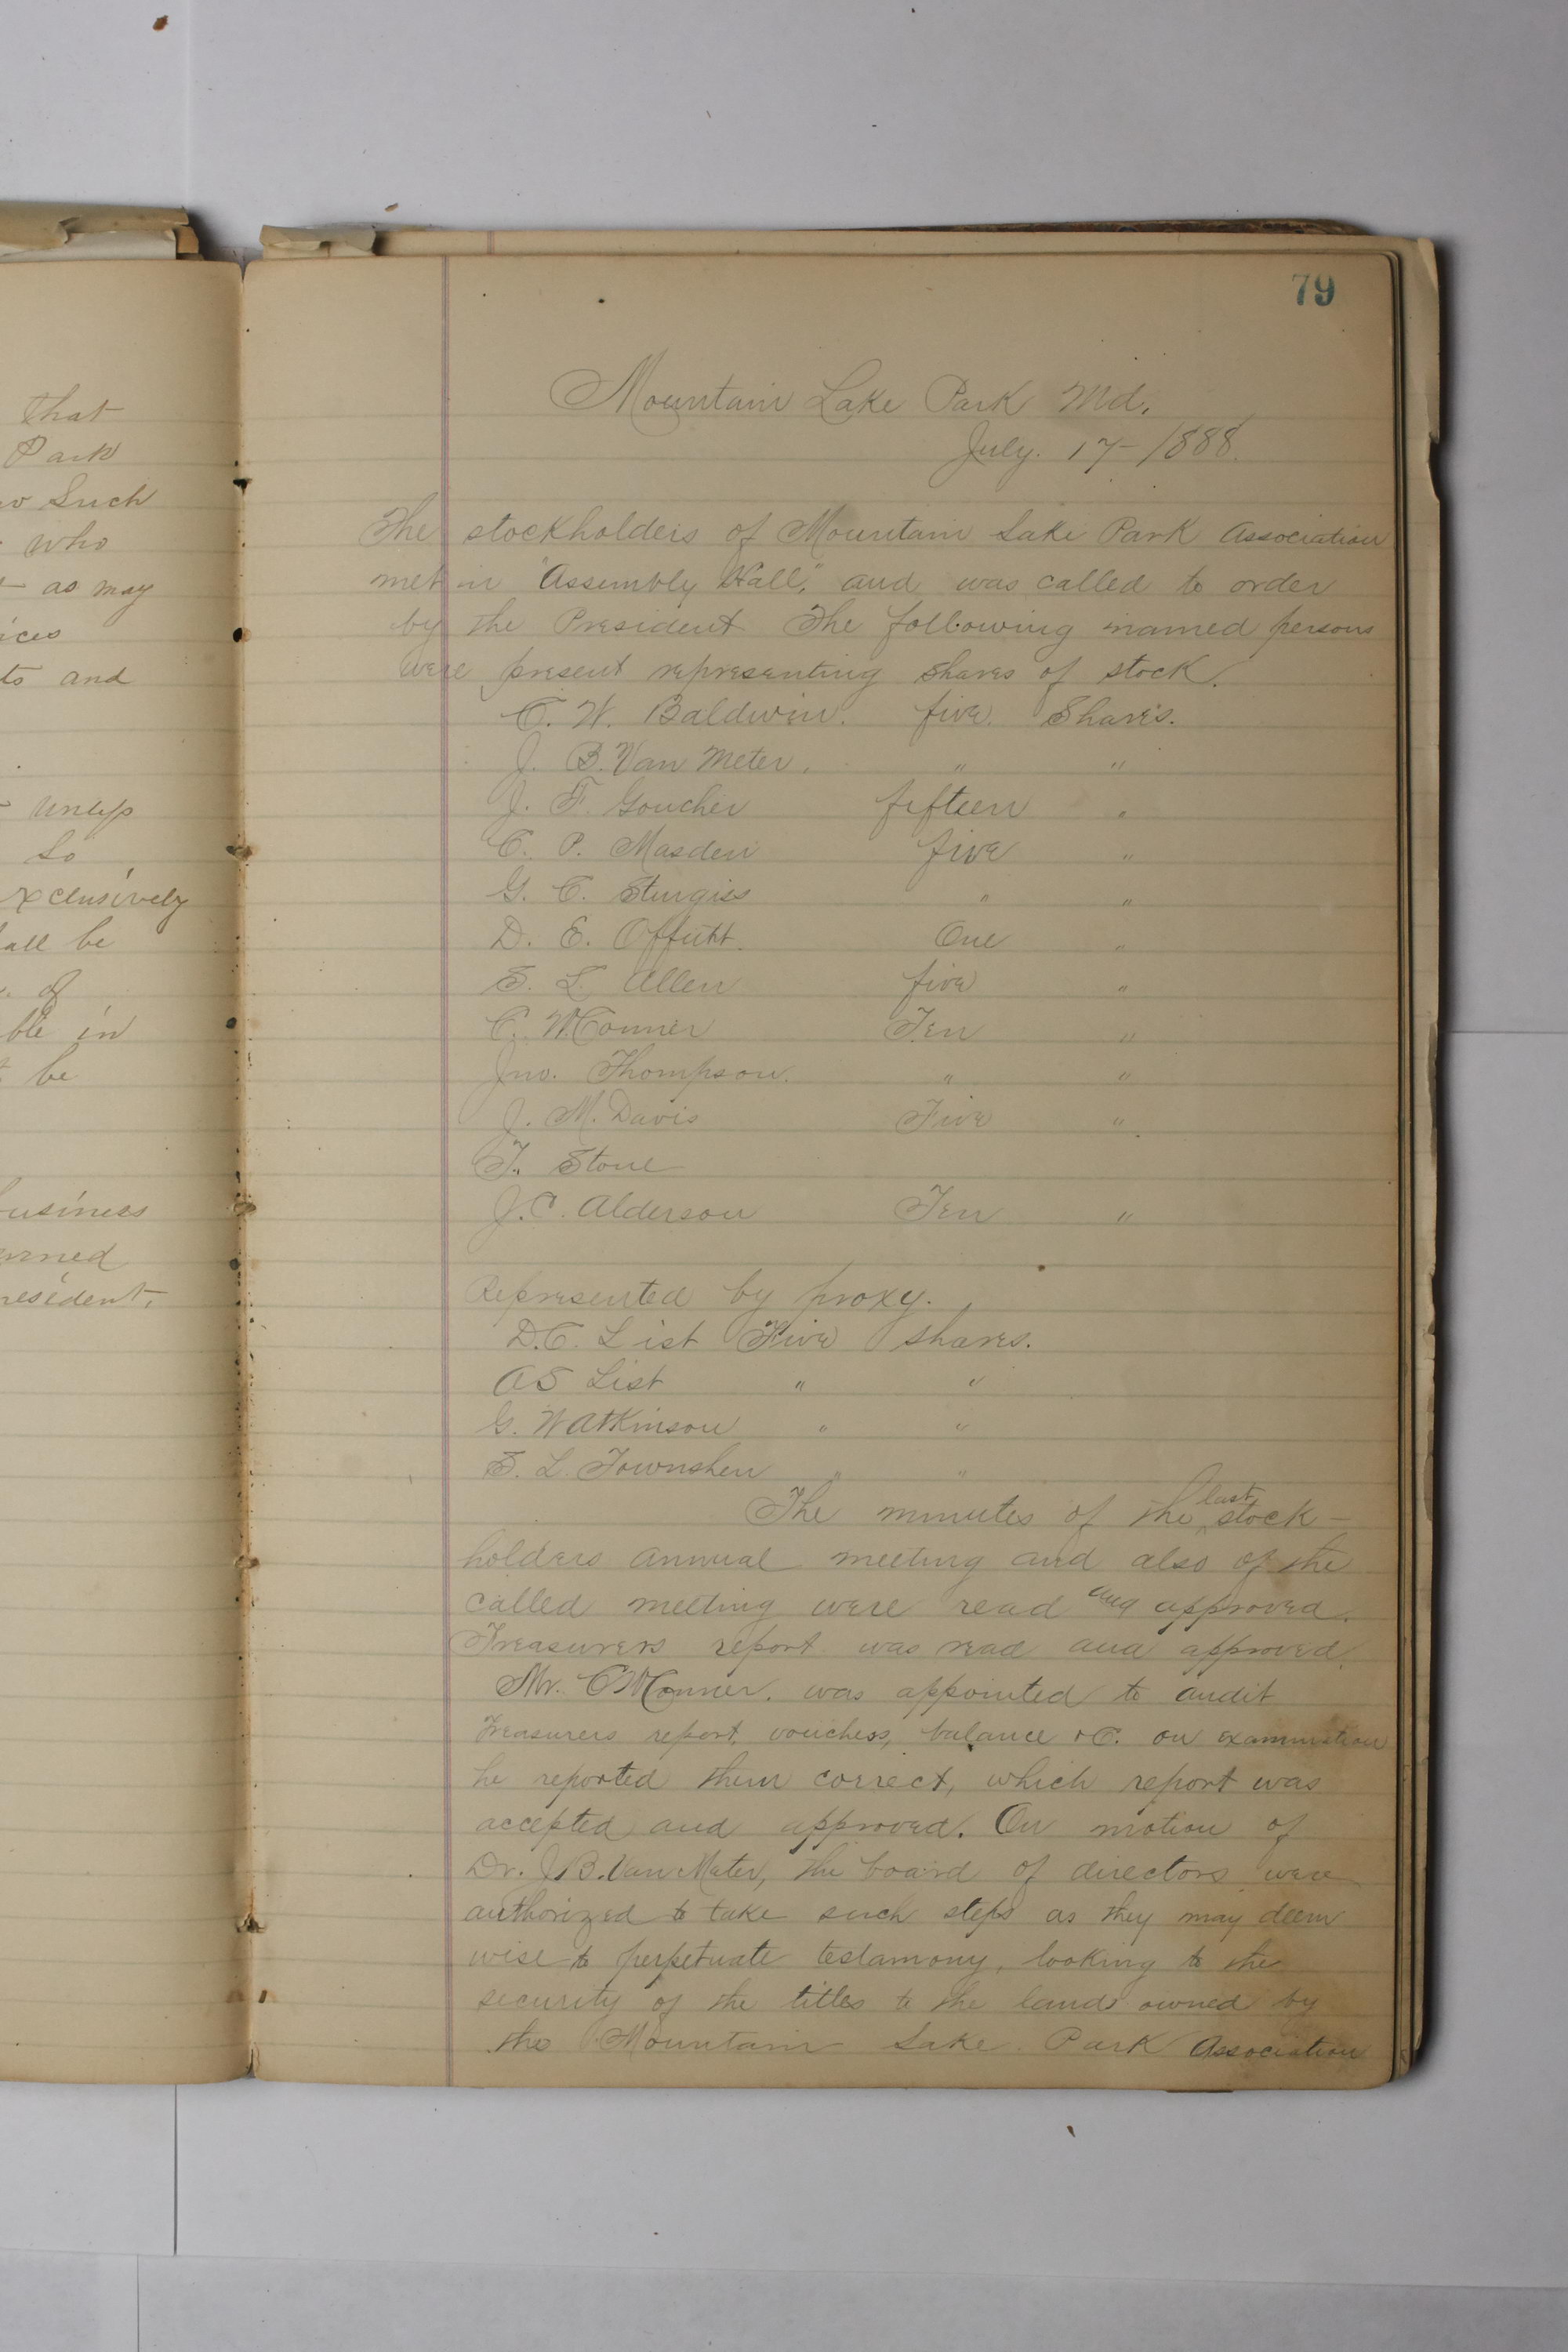 that
Park
Such
who
as may
ices
ts and
unless
So
xclusively
all be
of
ble in
be
usiness
urned
resident.
79
Mountain Lake Park Md.
July. 17-1888.
The stockholders of Mountain Lake Park Association
met in "Assembly Hall," and was called to order
by the President The following named persons
were present representing shares of stock.
C. W. Baldwin. five Shares.
J. B. Van Meter. " "
J. F. Goucher fifteen "
C. P. Masden five "
G. C. Sturgiss " "
D. E. Offutt. One "
S. L. Allen five "
C. W. Conner Ten "
Jno. Thompson. " "
J. M. Davis Five "
F. Stone
J. C. Alderson Ten "
Represented by proxy.
D.C. List Five shares.
A S List " "
G. W Atkinson " "
S. L. Townshen " "
The minutes of the last stock-
holders annual meeting and also of the
called meeting were read and approved.
Treasurers report was read and approved.
Mr. C W Conner. was appointed to audit
Treasurers report, vouchers, balance &C. on examination
he reported them correct, which report was
accepted and approved. On motion of
Dr. J B. Van Meter, the board of directors were
authorized to take such steps as they may deem
wise to perpetuate testamony, looking to the
security of the titles to the land owned by
the Mountain Lake Park Association